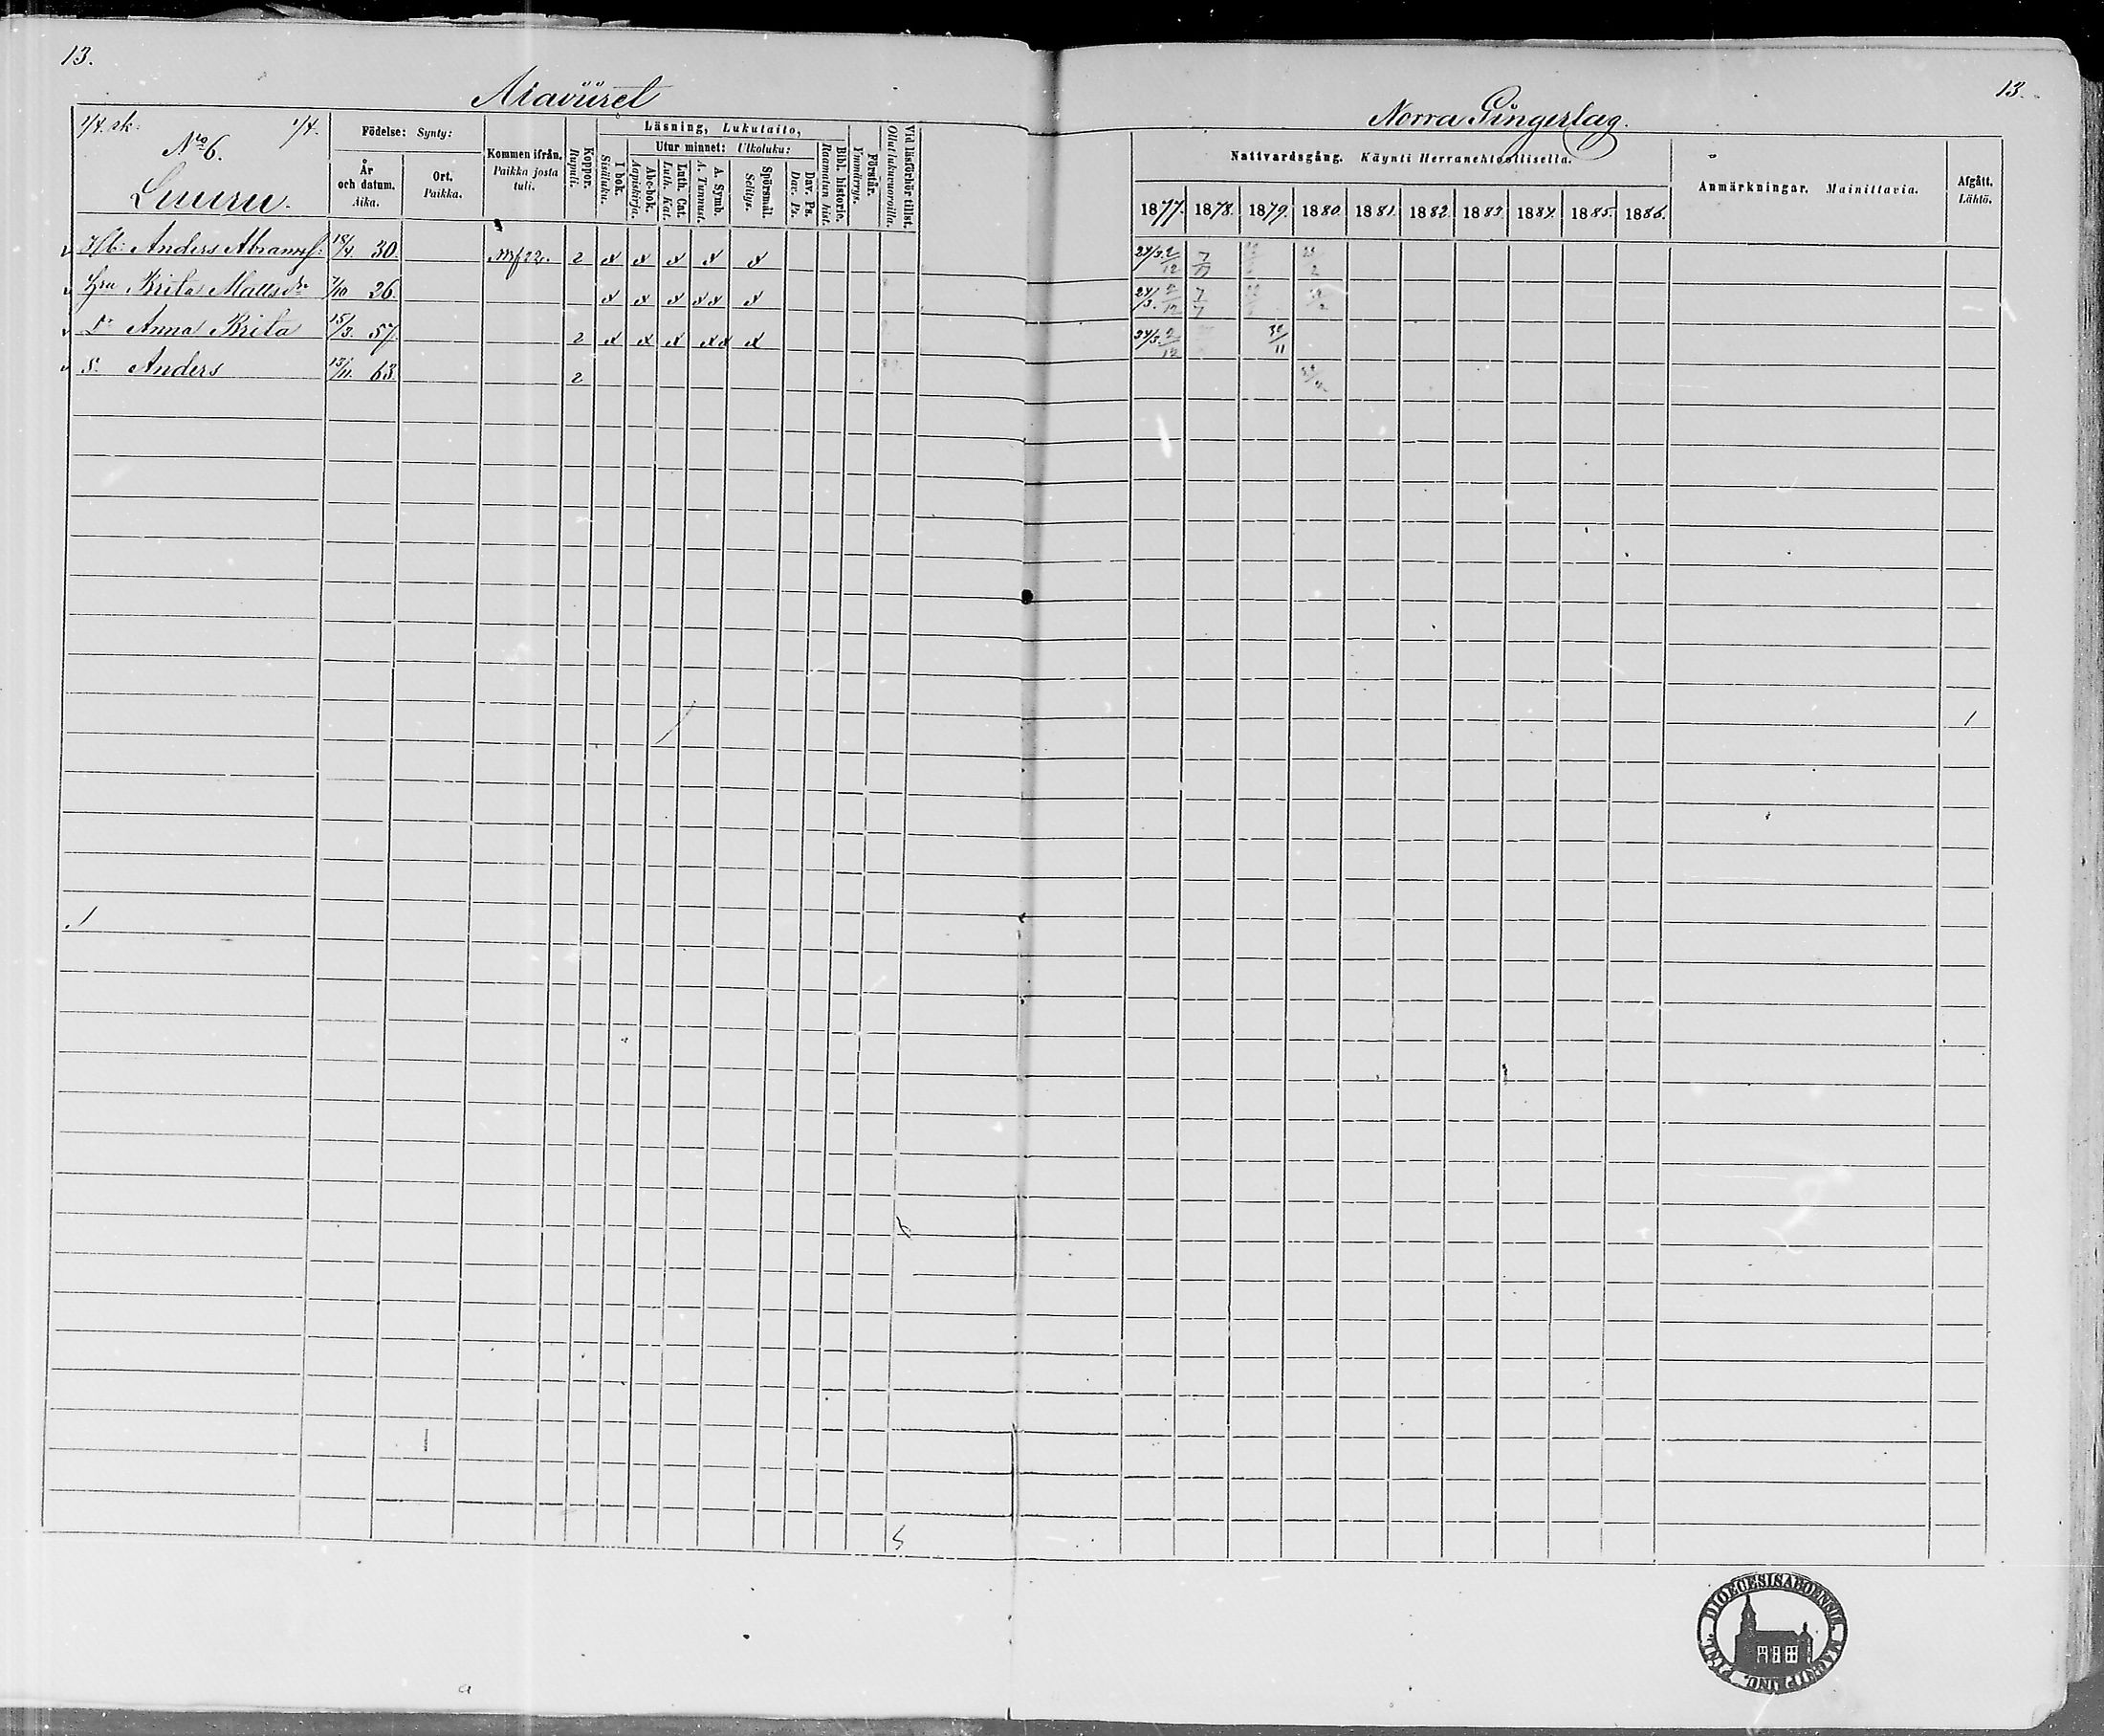 13.
13.
Norra Pingerlag.
1/4. sk. 1/4.
No 6.
Luuru.
Födelse: Synty:
År och datum. Aika.
Ort. Paikka.
Kommen ifrån. Paikka josta tuli.
Koppor. Rupuli.
Läsning, Lukutaito,
I bok. Sisäluku.
Utur minnet: Ulkoluku:
Abc-bok. Aapiskirja.
Luth. Cat. Luth. Kat.
A. Symb. A. Tunnust.
Spörsmål. Selitys.
Dav. Ps. Dav. Ps.
Bibl. historie. Raamatun hist.
Förstår. Ymmärrys.
Vid läsförhör tillst. Ollut lukuvuoroilla.
Nattvardsgång. Käynti Herranehtoollisella.
1877. 1878. 1879. 1880. 1881. 1882. 1883. 1884. 1885. 1886.
Anmärkningar. Mainittavia.
Afgått. Lähtö.
Anders Abramss. 18/4 30. 2 x x x x x 24/3. 2/12
Hru Brita Mattsdr. 7/10 26. x x x x x x 24/3. 2/12 7/7
Dr Anna Brita 15/3. 57. 2 x x x x x x 24/3. 2/12 30/11
S. Anders 13/11 63. 2
DIOECESIS ABOENSIS.